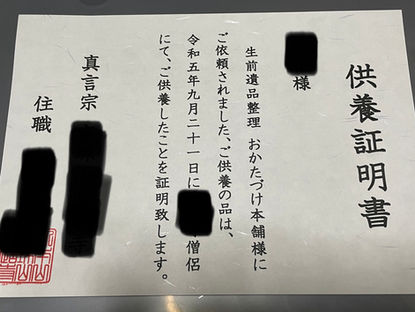 供養証明書
様
生前遺品整理 おかたづけ本舗様に
ご依頼されました、ご供養の品は、
令和五年九月二十一日に 僧侶
にて、ご供養したことを証明致します。
真言宗
住職